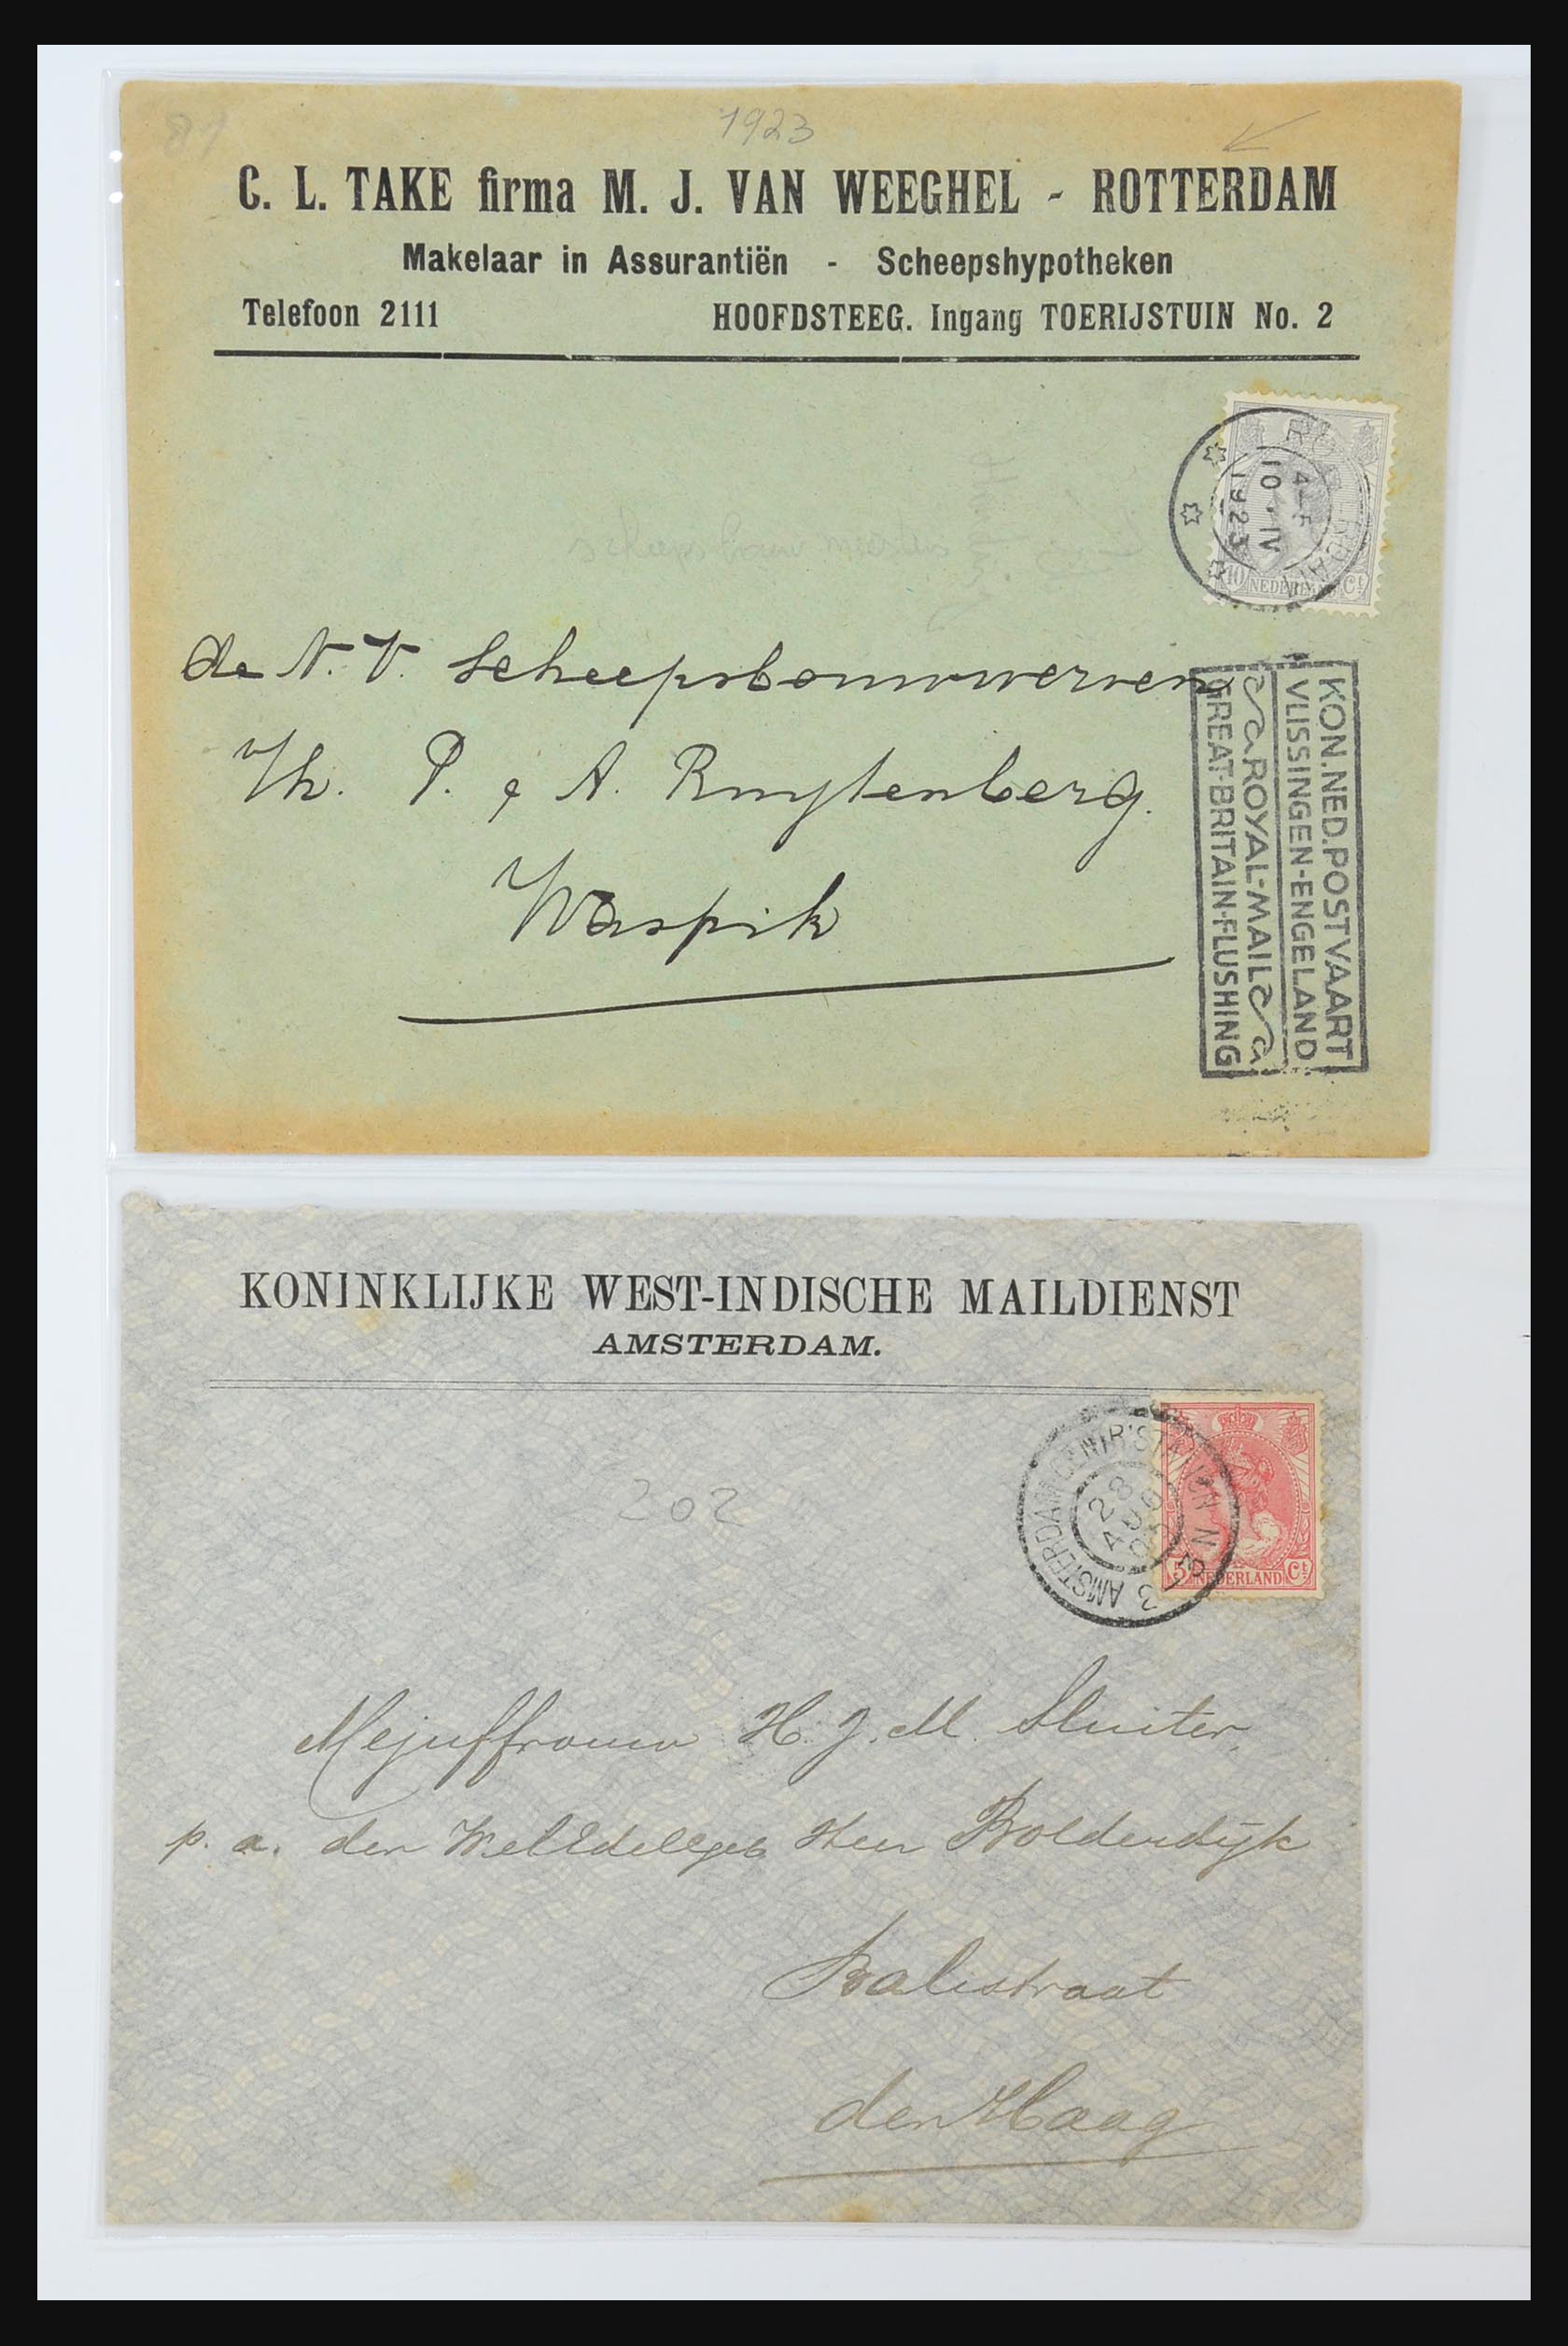 1923
C. L. TAKE firma M. J. VAN WEEGHEL - ROTTERDAM
Makelaar in Assurantiën - Scheepshypotheken
Telefoon 2111 HOOFDSTEEG. Ingang TOERIJSTUIN No. 2
10 IV
1923
10 NEDERLAND Ct
de N. V. Scheepsbouwwerven
v/h. P. & A. Ruytenberg.
Waspik
KON.NED.POSTVAART
VLISSINGEN-ENGELAND
ROYAL-MAIL
GREAT-BRITAIN-FLUSHING
KONINKLIJKE WEST-INDISCHE MAILDIENST
AMSTERDAM.
202
AMSTERDAM CENTR'STATION
5 NEDERLAND Ct
Mejuffrouw H. J. M. Sluiter,
p. a. den WelEdelgeb Heer Bolderdijk
Balistraat
den Haag